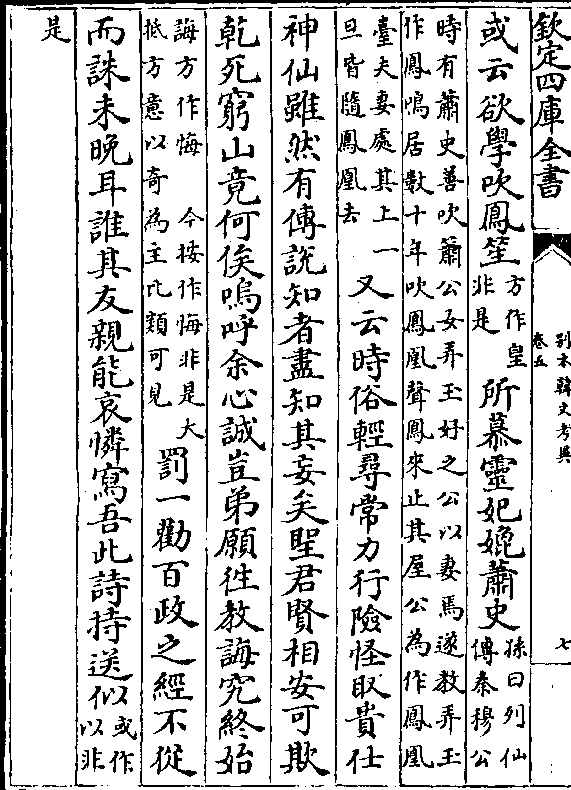 欽定四庫全書
別本韓文考異
卷五
七
或云欲學吹鳳笙方作皇非是所慕靈妃媲蕭史孫曰列仙傳秦穆公
時有蕭史善吹簫公女弄玉好之公以妻焉遂教弄玉
作鳳鳴居數十年吹鳳凰聲鳳來止其屋公為作鳳凰
臺夫妻處其上一旦皆隨鳳凰去又云時俗輕尋常力行險怪取貴仕
神仙雖然有傳說知者盡知其妄矣聖君賢相安可欺
乾死窮山竟何俟嗚呼余心誠豈弟願往教誨究終始
誨方作悔今按作悔非是大抵方意以奇為主此類可見罰一勸百政之經不從
而誅未晚耳誰其友親能哀憐寫吾此詩持送似或作以非
是